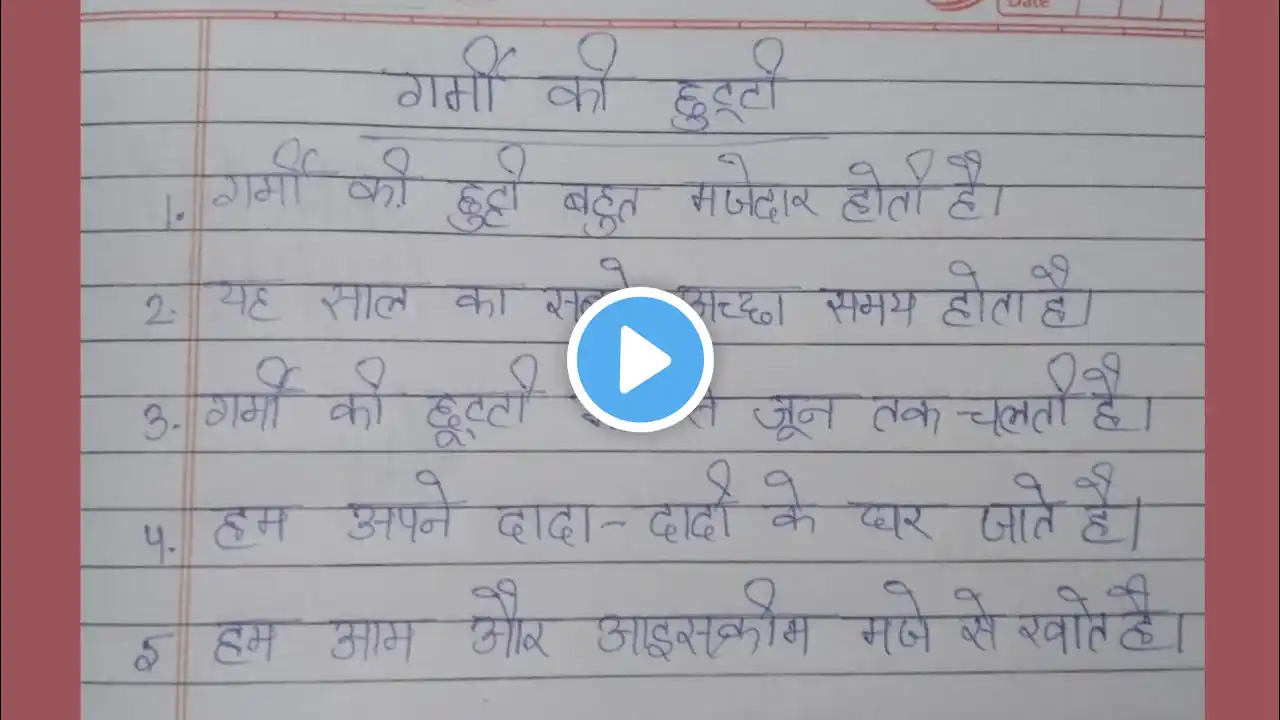 Date
गर्मी की छुट्टी
1. गर्मी की छुट्टी बहुत मजेदार होती है।
2. यह साल का सबसे अच्छा समय होता है।
3. गर्मी की छूट्टी से जून तक चलती है।
4. हम अपने दादा-दादी के घर जाते है।
5 हम आम और आइसक्रीम मजे से खाते है।